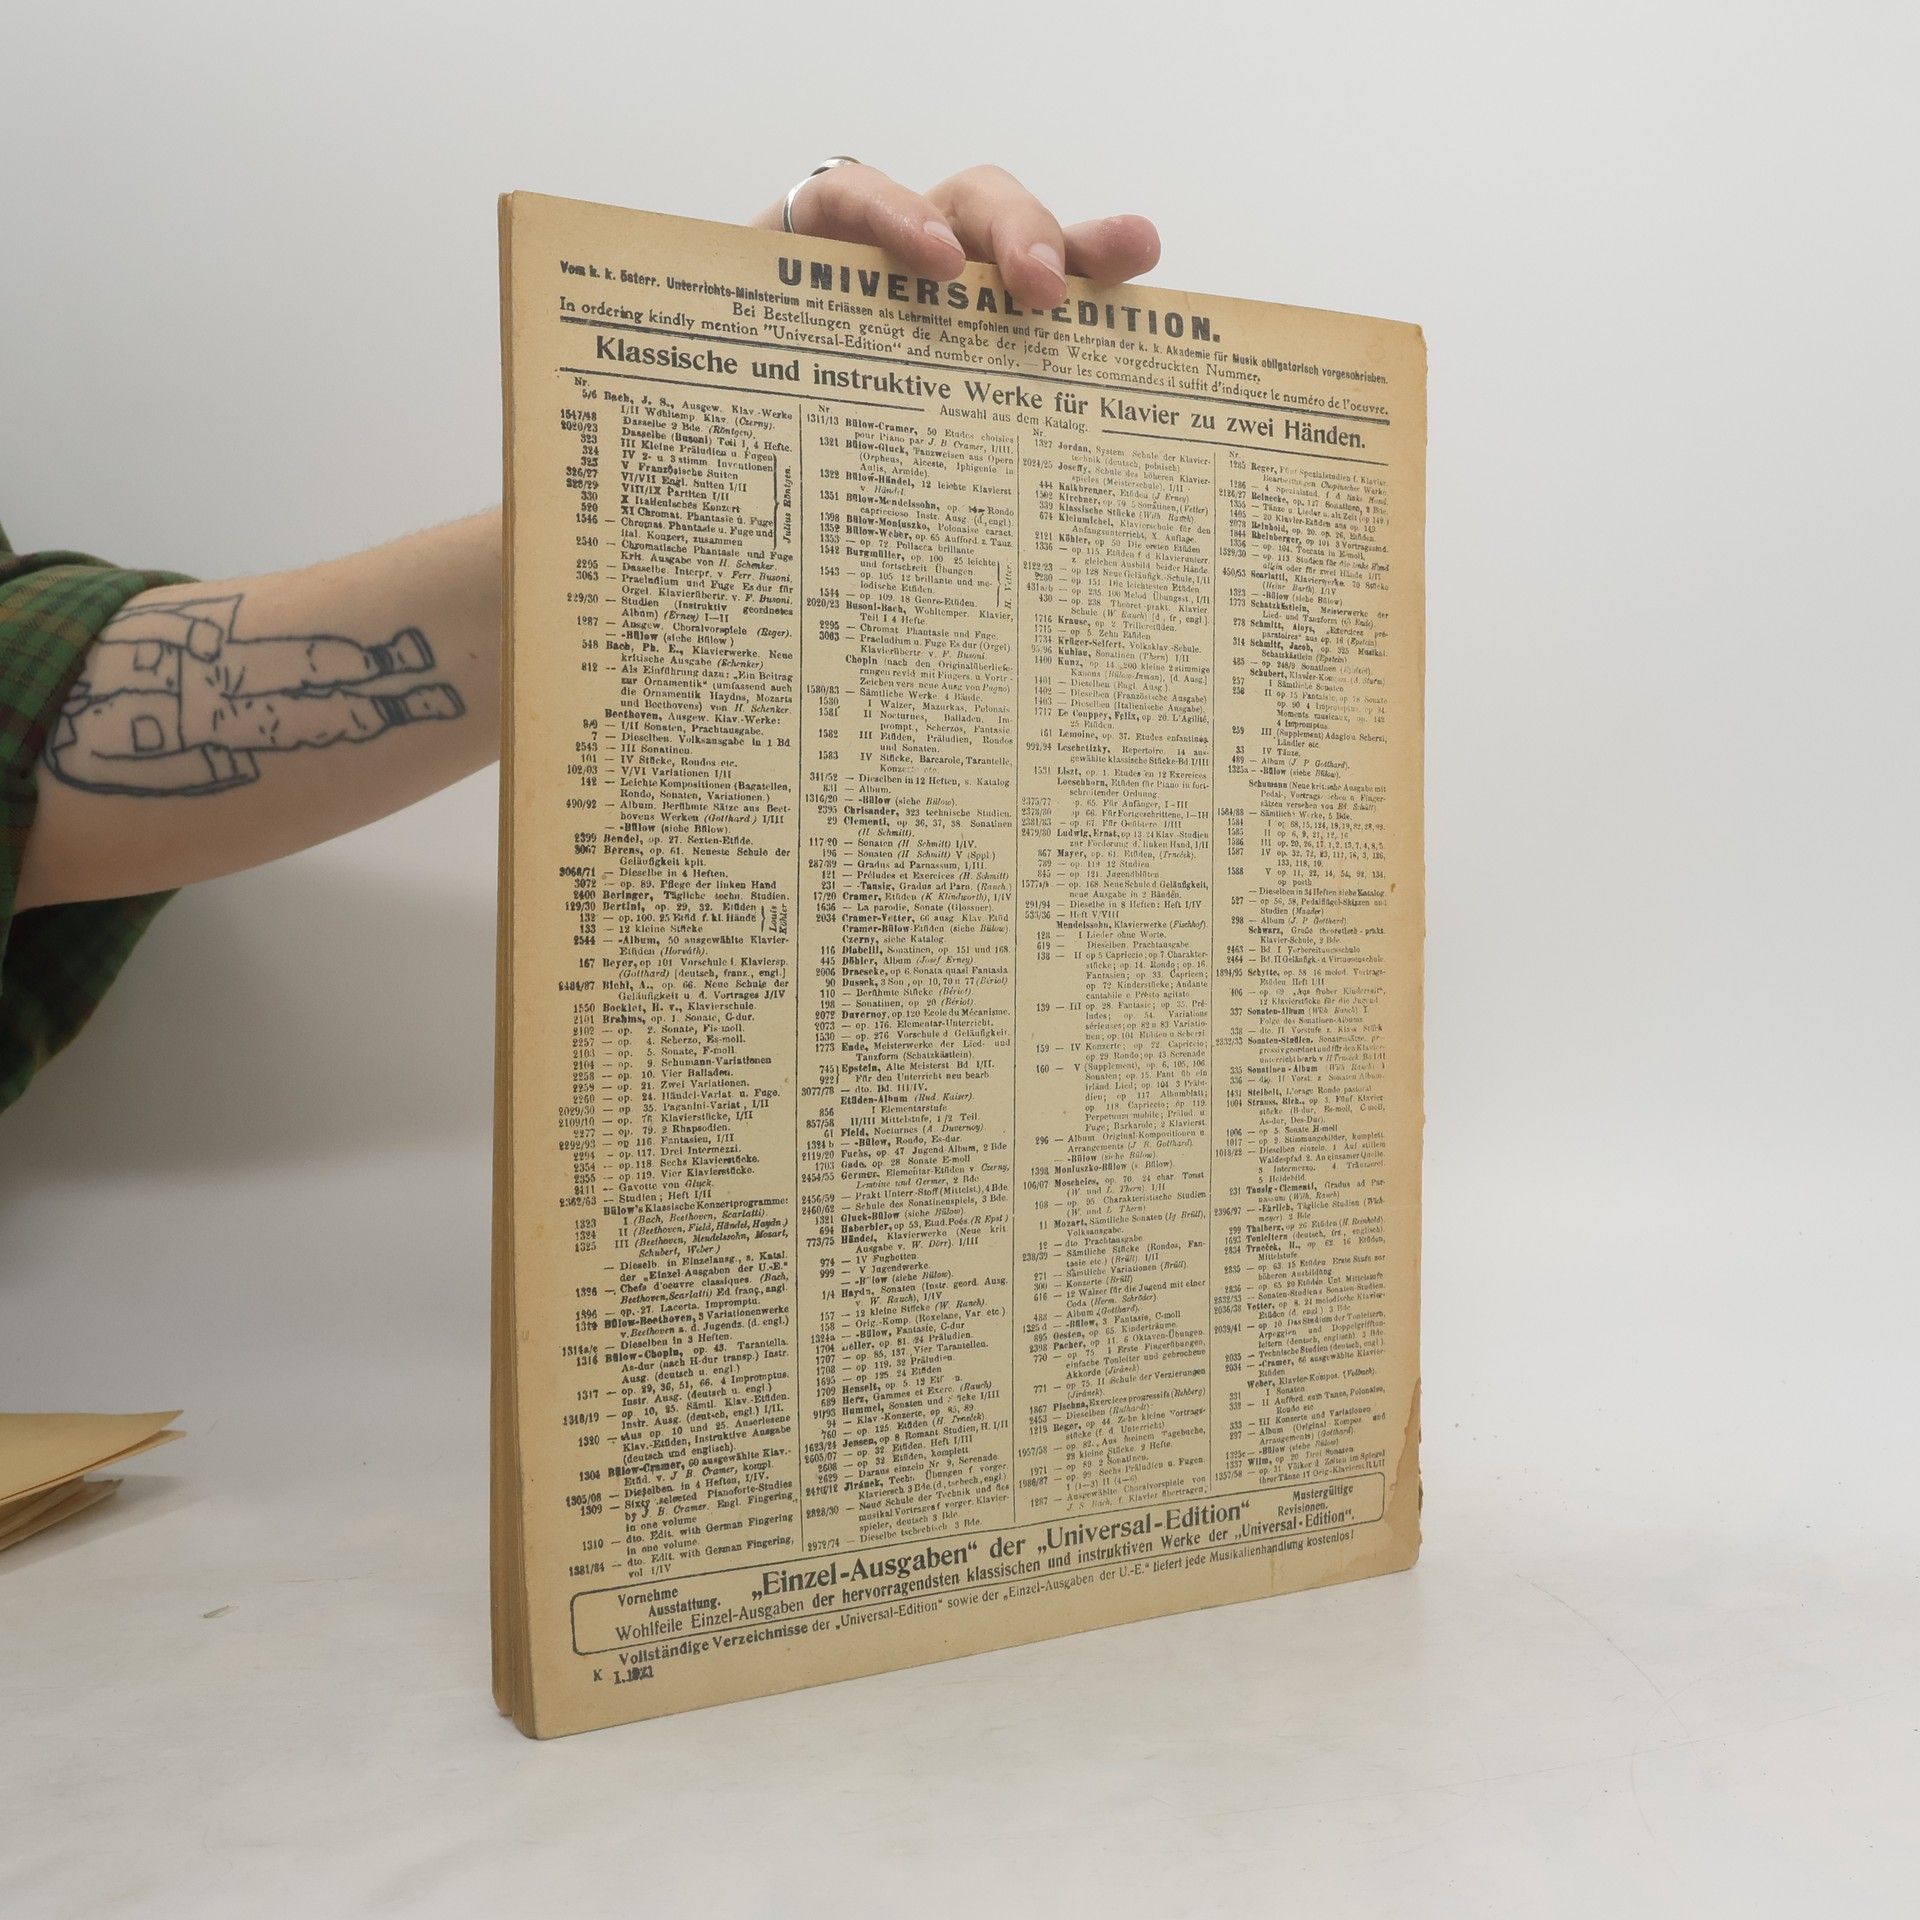 UNIVERSAL-EDITION.
Vom k. k. österr. Unterrichts-Ministerium mit Erlässen als Lehrmittel empfohlen und für den Lehrplan der k. k. Akademie für Musik obligatorisch vorgeschrieben.
Bei Bestellungen genügt die Angabe der jedem Werke vorgedruckten Nummer.
In ordering kindly mention "Universal-Edition" and number only. — Pour les commandes il suffit d'indiquer le numéro de l'oeuvre.
Klassische und instruktive Werke für Klavier zu zwei Händen.
Auswahl aus dem Katalog.
Nr.
5/6 Bach, J. S., Ausgew. Klav.-Werke
I/II Wohltemp. Klav. (Czerny).
1547/48 Dasselbe 2 Bde. (Röntgen).
2020/23 Dasselbe (Busoni) Teil 1, 4 Hefte.
323 III Kleine Präludien u. Fugen
324 IV 2- u. 3 stimm. Inventionen
325 V Französische Suiten
326/27 VI/VII Engl. Suiten I/II
328/29 VIII/IX Partiten I/II
330 X Italienisches Konzert
520 XI Chromat. Phantasie u. Fuge
Julius Röntgen.
1546 — Chromat. Phantasie u. Fuge und
Ital. Konzert, zusammen
2540 — Chromatische Phantasie und Fuge
Krit. Ausgabe von H. Schenker.
2295 — Dasselbe. Interpr. v. Ferr. Busoni.
3063 — Praeludium und Fuge Es dur für
Orgel. Klavierübertr. v. F. Busoni.
229/30 — Studien (Instruktiv geordnetes
Album) (Erney) I—II
1287 — Ausgew. Choralvorspiele (Reger).
— -Bülow (siehe Bülow)
548 Bach, Ph. E., Klavierwerke. Neue
kritische Ausgabe (Schenker)
812 — Als Einführung dazu: „Ein Beitrag
zur Ornamentik" (umfassend auch
die Ornamentik Haydns, Mozarts
und Beethovens) von H. Schenker.
Beethoven, Ausgew. Klav.-Werke:
8/9 — I/II Sonaten, Prachtausgabe.
7 — Dieselben. Volksausgabe in 1 Bd
2543 — III Sonatinen.
101 — IV Stücke, Rondos etc.
102/03 — V/VI Variationen I/II
142 — Leichte Kompositionen (Bagatellen,
Rondo, Sonaten, Variationen.)
490/92 — Album. Berühmte Sätze aus Beet-
hovens Werken (Gotthard.) I/III
— -Bülow (siehe Bülow).
2399 Bendel, op. 27. Sexten-Etüde.
3067 Berens, op. 61. Neueste Schule der
Geläufigkeit kplt.
3068/71 — Dieselbe in 4 Heften.
3072 — op. 89. Pflege der linken Hand
2400 Beringer, Tägliche techn. Studien.
129/30 Bertini, op. 29, 32. Etüden
132 — op. 100. 25 Etüd. f. kl. Hände
133 — 12 kleine Stücke
Louis Köhler
2544 — -Album, 50 ausgewählte Klavier-
Etüden (Horváth).
167 Beyer, op. 101 Vorschule i. Klaviersp.
(Gotthard) [deutsch, franz., engl.]
2484/87 Biehl, A., op. 66. Neue Schule der
Geläufigkeit u. d. Vortrages I/IV
1550 Bocklet, H. v., Klavierschule.
2101 Brahms, op. 1. Sonate, C-dur.
2102 — op. 2. Sonate, Fis-moll.
2257 — op. 4. Scherzo, Es-moll.
2103 — op. 5. Sonate, F-moll.
2104 — op. 9. Schumann-Variationen
2258 — op. 10. Vier Balladen.
2259 — op. 21. Zwei Variationen.
2260 — op. 24. Händel-Variat. u. Fuge.
2029/30 — op. 35. Paganini-Variat., I/II
2109/10 — op. 76 Klavierstücke, I/II
2277 — op. 79. 2 Rhapsodien.
2292/93 — op 116. Fantasien, I/II
2294 — op. 117. Drei Intermezzi.
2354 — op. 118. Sechs Klavierstücke.
2355 — op. 119. Vier Klavierstücke.
2111 — Gavotte von Gluck.
2362/63 — Studien; Heft I/II
Bülow's Klassische Konzertprogramme:
1323 I (Bach, Beethoven, Scarlatti).
1324 II (Beethoven, Field, Händel, Haydn.)
1325 III (Beethoven, Mendelssohn, Mozart,
Schubert, Weber)
— Dieselb. in Einzelausg., s. Katal.
der „Einzel-Ausgaben der U.-E."
1326 — Chefs d'oeuvre classiques. (Bach,
Beethoven, Scarlatti) Ed franç., angl.
1396 — op. 27. Lacerta. Impromptu.
1314 Bülow-Beethoven, 3 Variationenwerke
v. Beethoven a. d. Jugendz. (d. engl.)
1314a/c — Dieselben in 3 Heften.
1316 Bülow-Chopin, op. 43. Tarantella.
As-dur (nach H-dur transp.) Instr.
Ausg. (deutsch u. engl.)
1317 — op. 29, 36, 51, 66. 4 Impromptus.
Instr. Ausg. (deutsch u. engl.)
1318/19 — op. 10, 25. Sämtl. Klav.-Etüden.
Instr. Ausg. (deutsch, engl.) I/II.
1320 — Aus op. 10 und 25. Auserlesene
Klav.-Etüden, Instruktive Ausgabe
(deutsch und englisch).
1304 Bülow-Cramer, 60 ausgewählte Klav.-
Etüd. v. J. B. Cramer, kompl.
1305/08 — Dieselben in 4 Heften, I/IV.
1309 — Sixty selected Pianoforte-Studies
by J. B. Cramer. Engl. Fingering,
in one volume
1310 — dto. Edit. with German Fingering
in one volume.
1381/84 — dto. Edit. with German Fingering,
vol I/IV
Nr.
1311/13 Bülow-Cramer, 50 Etudes choisies
pour Piano par J. B. Cramer, I/III.
1321 Bülow-Gluck, Tanzweisen aus Opern
(Orpheus, Alceste, Iphigenie in
Aulis, Armide).
1322 Bülow-Händel, 12 leichte Klavierst
v. Händel.
1351 Bülow-Mendelssohn, op. 14 Rondo
capriccioso. Instr. Ausg. (d., engl.).
1398 Bülow-Moniuszko, Polonaise caract.
1352 Bülow-Weber, op. 65 Aufford. z. Tanz.
1353 — op. 72. Pollacca brillante
1542 Burgmüller, op. 100 25 leichte
und fortschreit Übungen.
1543 — op. 105 12 brillante und me-
lodische Etüden.
1544 — op. 109. 18 Genre-Etüden.
H. Vetter.
2020/23 Busoni-Bach, Wohltemper. Klavier,
Teil I 4 Hefte.
2295 — Chromat Phantasie und Fuge.
3063 — Praeludium u. Fuge Es dur (Orgel).
Klavierübertr. v. F. Busoni.
Chopin (nach den Originalüberliefe-
rungen revid mit Fingers. u. Vortr.-
Zeichen vers neue Ausg von Pugno)
1580/83 — Sämtliche Werke. 4 Bände.
1580 I Walzer, Mazurkas, Polonais.
1581 II Nocturnes, Balladen, Im-
prompt., Scherzos, Fantasie.
1582 III Etüden, Präludien, Rondos
und Sonaten.
1583 IV Stücke, Barcarole, Tarantelle,
341/52 — Dieselben in 12 Heften, s. Katalog
831 — Album.
1316/20 — -Bülow (siehe Bülow).
2395 Chrisander, 323 technische Studien.
29 Clementi, op 36, 37, 38. Sonatinen
(H Schmitt).
117/20 — Sonaten (H Schmitt) I/IV.
196 — Sonaten (H Schmitt) V (Sppl.)
287/89 — Gradus ad Parnassum, I/III.
121 — Préludes et Exercices (H. Schmitt)
231 — -Tausig, Gradus ad Parn. (Ranch.)
17/20 Cramer, Etüden (K Klindworth), I/IV
1636 — La parodie, Sonate (Glossner).
2034 Cramer-Vetter, 66 ausg Klav. Etüd
Cramer-Bülow-Etüden (siehe Bülow)
Czerny, siehe Katalog.
116 Diabelli, Sonatinen, op. 151 und 168.
445 Döhler, Album (Josef Erney)
2006 Draeseke, op 6. Sonata quasi Fantasia
90 Dussek, 3 Son., op 10, 70 n 77 (Bériot)
110 — Berühmte Stücke (Bériot)
198 — Sonatinen, op. 20 (Bériot).
2072 Duvernoy, op. 120 Ecole du Mécanisme.
2073 — op. 176. Elementar-Unterricht.
1530 — op. 276 Vorschule d. Geläufigkeit.
1773 Ende, Meisterwerke der Lied- und
Tanzform (Schatzkästlein).
745 Epstein, Alte Meisterst Bd I/II.
922 Für den Unterricht neu bearb.
3077/78 — dto. Bd. III/IV.
Etüden-Album (Rud. Kaiser).
856 I Elementarstufe
857/58 II/III Mittelstufe, 1/2 Teil.
61 Field, Nocturnes (A. Duvernoy).
1324 b — -Bülow, Rondo, Es-dur.
2119/20 Fuchs, op. 47 Jugend-Album, 2 Bde
1703 Gade, op. 28 Sonate E-moll
2454/55 Germer, Elementar-Etüden v. Czerny,
Lemoine und Germer, 2 Bde.
2456/59 — Prakt. Unterr.-Stoff (Mittelst), 4 Bde.
2460/62 — Schule des Sonatinenspiels, 3 Bde.
1321 Gluck-Bülow (siehe Bülow).
694 Haberbier, op 53, Etud. Poés. (R Epst)
773/75 Händel, Klavierwerke (Neue krit
Ausgabe v. W. Dörr). I/III
974 — IV Fughetten.
999 — V Jugendwerke.
— -Bülow (siehe Bülow).
1/4 Haydn, Sonaten (Instr. geord. Ausg.
v. W. Rauch), I/IV
157 — 12 kleine Stücke (W. Ranch).
158 — Orig.-Komp. (Roxelane, Var. etc.)
1324a — -Bülow, Fantasie, C-dur
1704 Heller, op. 81. 24 Präludien.
1707 — op. 85, 137. Vier Tarantellen.
1708 — op. 119. 32 Präludien.
1695 — op. 125. 24 Etüden
1709 Henselt, op. 5. 12
689 Herz, Gammes et Exerc. (Rauch)
91/93 Hummel, Sonaten und Stücke I/III
94 — Klav.-Konzerte, op. 85, 89.
760 — op. 125. Etüden (H. Trneček).
1623/24 Jensen, op. 8 Romant. Studien, H. I/II
2605/07 — op. 32. Etüden. Heft I/III
2608 — op 32 Etüden, komplett.
2629 — Daraus einzeln Nr 9, Serenade.
2410/12 Jiránek, Techn. Übungen f. vorger.
Klaviersch 3 Bde. (d., tschech., engl.)
2828/30 — Neue Schule der Technik und des
musikal Vortrages f vorger. Klavier-
spieler, deutsch 3 Bde.
2972/74 — Dieselbe tschechisch 3 Bde.
Nr.
1327 Jordan, System Schule der Klavier-
technik (deutsch, polnisch)
2024/25 Joseffy, Schule des höheren Klavier-
spieles (Meisterschule), I/II
444 Kalkbrenner, Etüden (J Erney)
1502 Kirchner, op. 70 5 Sonatinen, (Vetter)
339 Klassische Stücke (Wilh Rauch).
674 Kleinmichel, Klavierschule für den
Anfangsunterricht, X. Auflage.
2121 Köhler, op 50 Die ersten Etüden
1336 — op. 115. Etüden f. d Klavierunterr.
z gleichen Ausbild beider Hände.
2122/23 — op 128 Neue Geläufigk.-Schule, I/II
2280 — op. 151. Die leichtesten Etüden.
431a/b — op. 235. 100 Melod Übungsst., I/II
430 — op. 238. Theoret-prakt. Klavier
Schule (W. Rauch) [d, fr, engl.]
1716 Krause, op 2. Trilleretüden.
1715 — op. 5. Zehn Etüden
1734 Krüger-Seifert, Volksklav.-Schule.
95/96 Kuhlau, Sonatinen (Thern) I/II
1400 Kunz, op. 14. 200 kleine 2 stimmige
Kanons (Bülow-Inman), [d. Ausg.]
1401 — Dieselben (Engl. Ausg.)
1402 — Dieselben (Französische Ausgabe)
1403 — Dieselben (Italienische Ausgabe).
1717 Le Couppey, Felix, op. 20. L'Agilité,
25 Etüden.
161 Lemoine, op. 37. Etudes enfantines
992/94 Leschetizky, Repertoire. 14 aus-
gewählte klassische Stücke-Bd I/III
1531 Liszt, op. 1. Etudes en 12 Exercices
Loeschhorn, Etüden für Piano in fort-
schreitender Ordnung.
2375/77 op. 65. Für Anfänger, I—III
2378/80 op 66. Für Fortgeschrittene, I—III
2381/83 — op. 67. Für Geübtere I/III
2479/80 Ludwig, Ernst, op 13 24 Klav.-Studien
zur Förderung d. linken Hand, I/II
867 Mayer, op. 61. Etüden, (Trneček).
789 — op. 119 12 Studien.
845 — op. 121. Jugendblüten
1577a/b — op. 168. Neue Schule d. Geläufigkeit,
neue Ausgabe in 2 Bänden.
291/94 — Dieselbe in 8 Heften: Heft I/IV
533/36 — Heft V/VIII
Mendelssohn, Klavierwerke (Fischhof).
128 — I Lieder ohne Worte.
619 — Dieselben. Prachtausgabe.
138 — II op 5 Capriccio; op 7. Charakter-
stücke; op 14. Rondo; op. 16.
Fantasien; op 33. Capricen;
op 72 Kinderstücke; Andante
cantabile e Presto agitato
139 — III op 28. Fantasie; op. 35. Prä-
ludes; op. 54. Variations
sérieuses; op 82 n 83. Variatio-
nen; op. 104 Etüden u Scherzi.
159 — IV Konzerte; op. 22. Capriccio;
op 29. Rondo; op. 43 Serenade
160 — V (Supplement), op 6, 105, 106
Sonaten; op. 15. Fant. üb ein
irländ. Lied; op. 104 3 Prälu-
dien; op 117 Albumblatt;
op 118. Capriccio; op 119.
Perpetuum mobile; Prälud u
Fuge; Barkarole; 2 Klavierst
296 — Album Original-Kompositionen u
Arrangements (J. R. Gotthard).
— -Bülow (siehe Bülow).
1398 Moniuszko-Bülow (s. Bülow).
106/07 Moscheles, op. 70. 24 char. Tonst
(W. und L. Thern). I/II
108 — op. 95. Charakteristische Studien
(W. und L Thern)
11 Mozart, Sämtliche Sonaten (Ig Brüll),
Volksausgabe.
12 — dto Prachtausgabe
238/39 — Sämtliche Stücke (Rondos, Fan-
tasie etc.) (Brüll). I/II
271 — Sämtliche Variationen (Brüll).
300 — Konzerte (Brüll)
616 — 12 Walzer für die Jugend mit einer
Coda (Herm. Schröder)
488 — Album (Gotthard).
1325 d — -Bülow, 3 Fantasie, C-moll.
895 Oesten, op 65. Kinderträume.
2398 Pacher, op 11. 6 Oktaven-Übungen.
770 — op 75. I Erste Fingerübungen,
einfache Tonleiter und gebrochene
Akkorde (Jiránek).
771 — op 75. II Schule der Verzierungen
(Jiránek).
1867 Pischna, Exercices progressifs (Rehberg)
2453 — Dieselben (Ruthardt)
1219 Reger, op 44. Zehn kleine Vortrags-
stücke (f. d Unterricht)
1957/58 — op. 82. Aus meinem Tagebuche,
23 kleine Stücke. 2 Hefte.
1971 — op 89 2 Sonatinen.
1986/87 — op. 99. Sechs Präludien u. Fugen.
I (1—3) II (4—6)
1287 — Ausgewählte Choralvorspiele von
J. S. Bach, f. Klavier übertragen;
Nr.
1285 Reger, Fünf Spezialstudien f. Klavier
Bearbeitungen Chopinscher Werke.
1286 — 4 Spezialstud. f. d linke Hand
2126/27 Reinecke, op. 127 Sonatinen, 2 Bde.
1355 — Tänze u. Lieder u. alt. Zeit (op 149)
1405 — 20 Klavier-Etüden aus op. 149.
2078 Reinhold, op. 20. op. 26, Etüden.
1844 Rheinberger, op 101 3 Vortragsstud.
1356 — op. 104. Toccata in E-moll.
1329/30 — op. 113. Studien für die linke Hand
450/53 Scarlatti, Klavierwerke. 70 Stücke
(Heinr Barth), I/IV
1323 — -Bülow (siehe Bülow)
1773 Schatzkästlein, Meisterwerke der
Lied- und Tanzform (G. Ende).
278 Schmitt, Aloys, „Exercices pré-
paratoires" aus op. 16 (Epstein)
314 Schmitt, Jacob, op. 325 Musikal.
Schatzkästlein (Epstein)
485 — op 248/9. Sonatinen
Schubert, Klavier-Kompos. (A. Sturm)
257 I Sämtliche Sonaten
258 II op. 15 Fantasie, op 78 Sonate
op. 90 4 Impromptus, op 94
Moments musicaux, op. 142
4 Impromptus
259 III (Supplement) Adagio u Scherzi,
Ländler etc.
33 IV Tänze.
489 — Album (J. P Gotthard).
1325a — -Bülow (siehe Bülow).
Schumann (Neue kritische Ausgabe mit
1584/88 — Sämtliche Werke, 5 Bde.
1584
1585 II op 6, 9, 21, 12, 16
1586
1587
1588
— Dieselben in 34 Heften siehe Katalog
527 — op 56, 58, Pedalflügel-Skizzen und
Studien
298 — Album (J. P Gotthard).
Schwarz, Große theoretisch-prakt.
Klavier-Schule, 2 Bde.
2463 — Bd. I Vorbereitungsschule
2464 — Bd. II Geläufigk.- u. Virtuosenschule.
1894/95 Schytte, op. 58 16 melod. Vortrags-
Etüden Heft I/II
406 — op 69 „Aus froher Kinderzeit",
12 Klavierstücke für die Jugend
337 Sonaten-Album (Wilh Rauch) I.
Folge des Sonatinen-Albums.
338 — dto. II Vorstufe z. Klass Stück
2832/33 Sonaten-Studien. Sonatensätze, pr-
gressiv geordnet und für den Klavier-
335 Sonatinen-Album (Wilh Rauch) I
336 — dto. II Vorst. z. Sonaten Album
1431 Steibelt, L'orage Rondo pastoral
1004 Strauss, Rich., op 3. Fünf Klavier-
stücke (B-dur, Es-moll, C-moll,
As-dur, Des-Dur).
1006 — op 5. Sonate H-moll
1017 — op 9. Stimmungsbilder, komplett
1018/22 — Dieselben einzeln. 1 Auf stillem
Waldespfad 2. An einsamer Quelle.
3 Intermezzo. 4. Träumerei.
5 Heidebild.
231 Tausig-Clementi, Gradus ad Par-
nassum (Wilh. Rauch).
2396/97 — -Ehrlich, Tägliche Studien
299 Thalberg, op 26 Etüden (H Reinhold).
1693 Tonleitern (deutsch, frz., englisch).
2834 Trneček, H., op 62 16 Etüden
Mittelstufe
2835 — op 63. 15 Etüden Erste Stufe zur
höheren Ausbildung
2836 — op 65. 20 Etüden Unt. Mittelstufe
2832/33 — Sonaten-Studien s Sonaten-Studien.
2036/38 Vetter, op 8. 24 melodische Klavier-
Etüden (d. engl.) 3 Bde
2039/41 — op 10. Das Studium der Tonleitern,
Arpeggien und Doppelgriffton-
leitern (deutsch, englisch). 3 Bde.
2035 — Technische Studien (deutsch, engl.)
2034 — -Cramer, 66 ausgewählte Klavier-
Etüden
Weber, Klavier-Kompos. (Volbach).
331 I Sonaten
332 — II Aufford. zum Tanze, Polonaise,
Rondo etc
333 — III Konzerte und Variationen
297 — Album (Original-Kompos und
Arrangements) (Gotthard).
1325c — -Bülow (siehe Bülow)
1337 Wilm, op 20 Drei Sonaten
1357/58
„Einzel-Ausgaben" der „Universal-Edition"
Vornehme
Ausstattung.
Mustergültige
Revisionen.
Wohlfeile Einzel-Ausgaben der hervorragendsten klassischen und instruktiven Werke der „Universal-Edition".
Vollständige Verzeichnisse der „Universal-Edition" sowie der „Einzel-Ausgaben der U.-E." liefert jede Musikalienhandlung kostenlos!
K I. 1921